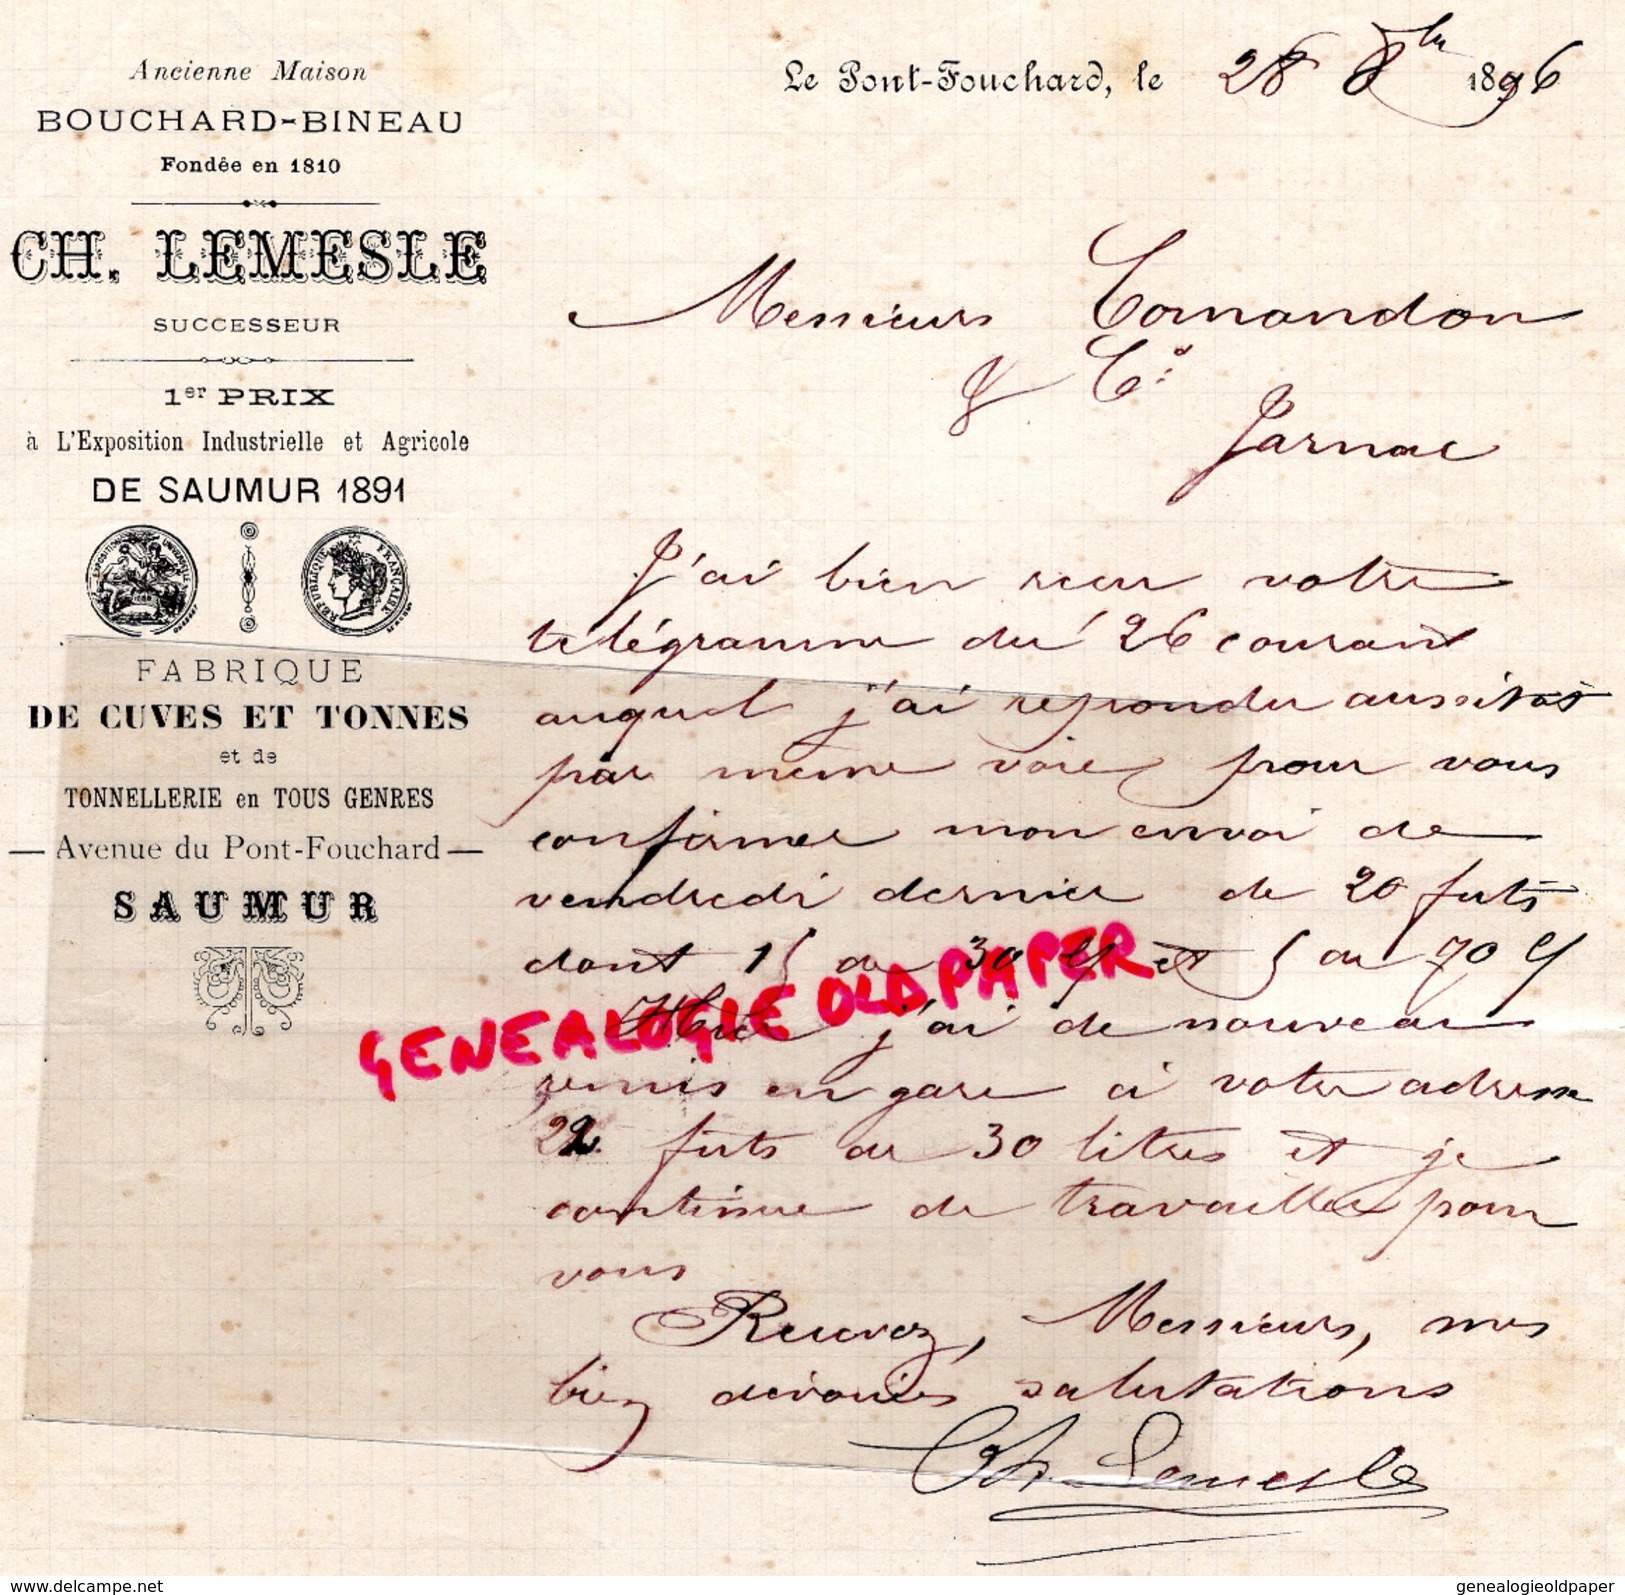 Ancienne Maison
BOUCHARD-BINEAU
Fondée en 1810
CH. LEMESLE
SUCCESSEUR
1er PRIX
à L'Exposition Industrielle et Agricole
DE SAUMUR 1891
RÉPUBLIQUE FRANÇAISE
FABRIQUE
DE CUVES ET TONNES
et de
TONNELLERIE en TOUS GENRES
— Avenue du Pont-Fouchard —
SAUMUR
Le Pont-Fouchard, le 28 8bre 1896
Messieurs Comandon
& Cie
Jarnac
J'ai bien reçu votre
telégramme du 26 courant
auquel j'ai repondu aussitot
par meme voie pour vous
confirmer mon envoi de
vendredi dernier de 20 futs
dont 15 de 30 et 5 de 70
Hier j'ai de nouveau
remis en gare à votre adresse
22 futs de 30 litres et je
continue de travailler pour
vous
Recevez, Messieurs, mes
bien dévouées salutations
Ch Lemesle
GENEALOGIE OLD PAPER
www.delcampe.net
genealogieoldpaper